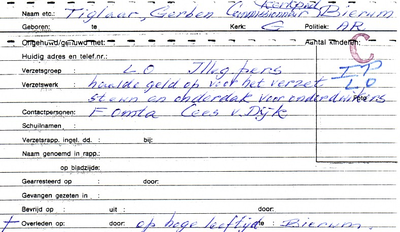 Naam etc.: Tiglaar, Gerben Kerkpad Commissionair Bierum
Geboren: te Kerk: G Politiek: AR
Ongehuwd/gehuwd met: Aantal kinderen:
C
Huidig adres en telef.nr.:
Verzetsgroep : LO Illeg pers IP
Verzetswerk : haalde geld op voor het verzet LO
steun en onderdak voor onderduikers
Contactpersonen: Fomta Cees v. Dijk
Schuilnamen :
Verzetsrapp. ingel. dd. : bij:
Naam genoemd in rapp.:
op bladzijde:
Gearresteerd op : door:
Gevangen gezeten in :
Bevrijd op : uit : door:
+ Overleden op: door: op hoge leeftijd te : Bierum.